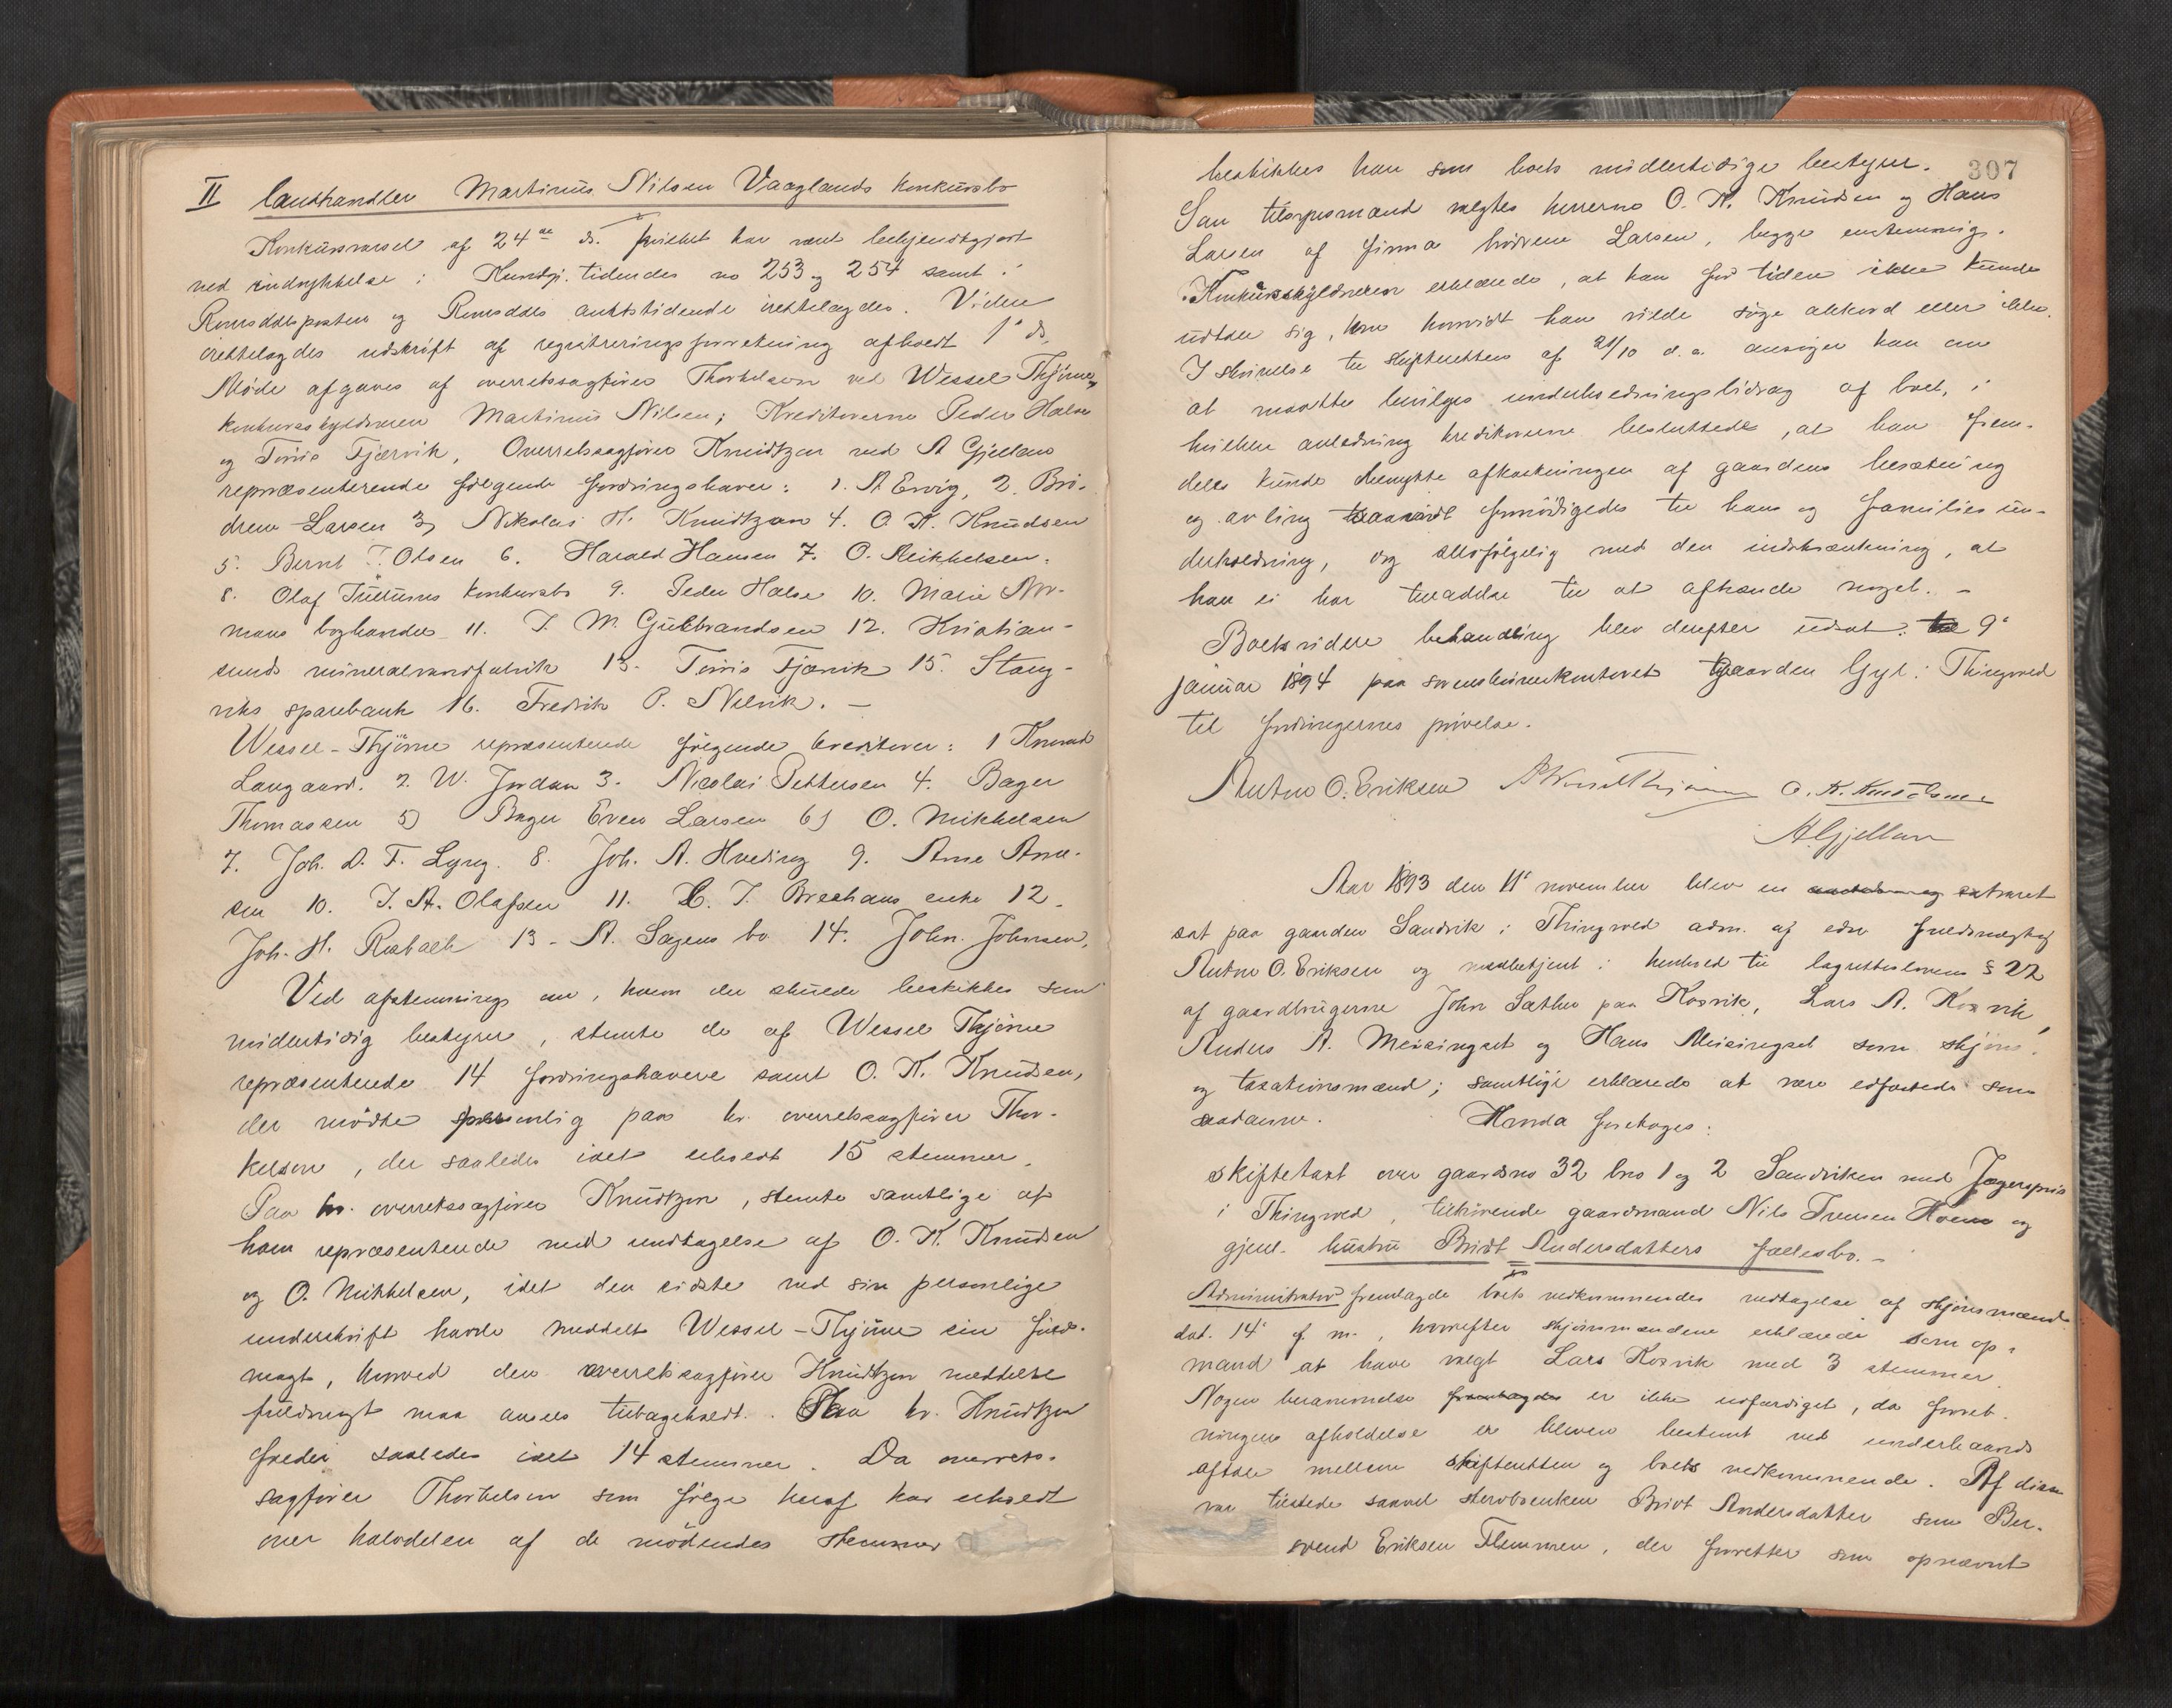 II landhandler Martinus Nilsen Vaaglands konkursbo
Konkursvarsel af 24de ds. hvilket har vært bekjendtgjort
ved indrykkelse i Kundgj. tidendes no 253 og 254 samt i
Romsdalsposten og Romsdals amtstidende irettelagdes. Videre
irettelagdes udskrift af registreringsforretning afholdt 1' ds.
Møde afgaves af overretssagfører Thorkelson ved Wessel Thjørne,
konkursskyldneren Martinus Nilsen; Kreditorerne Peder Halse
og Tørris Fjærvik, Overretssagfører Knudtzon ved A Gjellan
repræsenterende følgende fordringshaver: 1. A Ervig, 2. Brø-
drene Larsen 3, Nikolai H. Knudtzon 4. O. K. Knudsen
5. Bernt T. Olsen 6. Harald Hansen 7. O. Mikkelsen.
8. Olaf konkursbo 9. Peder Halse 10. Marie Nor-
mans boghandel 11. J. M. Gulbrandsen 12. Kristian-
sunds mineralvandfabrik 13. Tørris Fjærvik 15. Stang-
viks sparebank 16. Fredrik P. Nelvik. —
Wessel-Thjørne repræsenterede følgende kreditorer: 1 Konrad
Langaard. 2. W. Jordan 3. Nicolai Pettersen 4. Bager
Thomassen 5) Bager Even Larsen 6) O. Mikkelsen
7. Joh. D. F. Lyng. 8. Joh. A. Hveding 9. Arne Arne-
sen 10. J. A. Olafsen 11. C. J. Brechans enke 12.
Joh. H. 13 - A. Sagens bo 14. John. Johnsen.
Ved afstemnings om, hvem der skulde beskikkes som
midlertidig bestyrer, stemte de af Wessel Thjørne
repræsenterede 14 fordringshavere samt O. K. Knudsen,
der mødte personlig paa hr. overretssagfører Thor-
kelson, der saaledes ialt erholdt 15 stemmer.
Paa hr. overretssagfører Knudtzon, stemte samtlige af
ham repræsenterede med undtagelse af O. K. Knudsen
og O. Mikkelsen, idet den sidste ved sin personlige
underskrift havde meddelt Wessel-Thjørne sin fuld-
magt, hvorved den overretssagfører Knudtzon meddelte
fuldmagt maa ansees tilbagekaldt. Paa hr. Knudtzon
faldt saaledes ialt 14 stemmer. Da overrets-
sagfører Thorkelson som følge heraf har erholdt
over halvdelen af de mødendes stemmer
307
beskikkes han som boets midlertidige bestyrer.
Som tilsynsmænd valgtes herrerne O. K. Knudsen og Hans
Larsen af firma brødrene Larsen, begge enstemmigt.
Konkursskyldneren erklærede, at han for tiden ikke kunde
udtale sig, om hvorvidt han vilde søge akkord eller ikke.
I skrivelse til skifteretten af 21/10 d. a. ansøger han om
at maatte bevilges underholdningsbidrag af boet, i
hvilken anledning kreditorerne besluttede, at han frem-
deles kunde benytte afkastningen af gaardens besætning
og avling saavidt fornødigedes til hans og families un-
derholdning, dog selvfølgelig med den indskrænkning, at
han ei har tilladelse til at afhænde noget. —
Boets videre behandling blev derefter udsat til 9'
januar 1894 paa sorenskriverkontoret gaarden Gyl i Thingvold
til fordringernes prøvelse.
Anton O. Eriksen A Wessel Thjørne O. K. Knudsen
A. Gjellan
Aar 1893 den 11' november blev en extraret
sat paa gaarden Sandvik i Thingvold adm. af edsv fuldmægtig
Anton O. Eriksen og medbetjent i henhold til lagrettelovens § 22
af gaardbrugerne John Sæther paa Kosvik, Lars A. Kosvik,
Anders A. Meisingset og Hans Meisingset som skjøns-
og taxationsmænd; samtlige erklærede at være edfæstede som
saadanne. Hvorda foretoges:
skiftetaxt over gaardsno 32 bno 1 og 2 Sandviken med Jægerspris
i Thingvold, tilhørende gaardmand Nils Iversen Hoem og
gjenl. hustru Brit Andersdatters fællesbo. —
Administrator fremlagde boets vedkommendes vedtagelse af skjønsmænd
dat. 14' f. m., hvorefter skjønsmændene erklærede som op-
mand at have valgt Lars Kosvik med 3 stemmer.
Nogen berammelse fremlagdes er ikke udfærdiget, da forret-
ningens afholdelse er bleven bestemt ved underhaands
aftale mellem skifteretten og boets vedkommende. Af disse
var tilstede saavel stervboenken Brit Andersdatter som Ber-
svend Eriksen Flemmen, der forretter som opnævnt